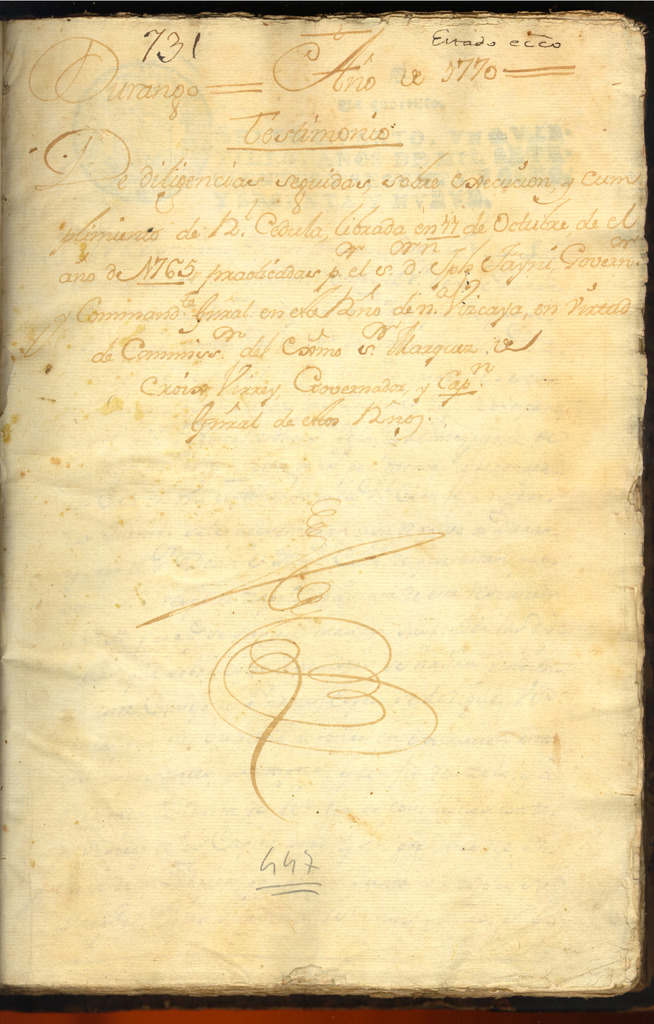 731
Estado ecco
Durango = Año de 1770 =
Testimonio
De diligencias seguidas, sobre execucion, y cum
plimiento de Rl. Cedula, librada en 17 de Octubre, de el
año de 1765, practicadas pr. el sr. dn. Jph Fayni, Governr.
y Commandte. Gnral en este Rno de na. Vizcaya, en virtud
de Commissn. del Exmo sr. Marquez de
Croix, Virrey, Governador, y Capn.
Gnral de estos Rnos.
447